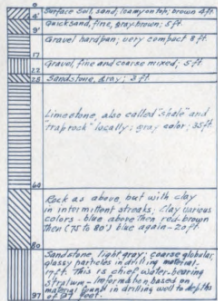 0
Surface soil, sand, loamy on top, brown 4ft.
4'
Quicksand, fine, gray brown; 5 ft.
9'
Gravel hardpan; very compact 8 ft.
17
Gravel, fine and coarse mixed, 5 ft.
22
Sandstone, gray; 3 ft.
25
Limestone, also called "shale" and
"trap rock" locally; gray color; 35 ft.
60
Rock as above, but with clay
in intermittent streaks. Clay various
colors - blue above then red-brown
then (75 to 80') blue again - 20 ft.
80
Sandstone, light gray; coarse globular
glassy particles in drilling material
17 ft. This is chief water-bearing
stratum - Information based on
material found in drilling well to depths
of 97 feet.
97